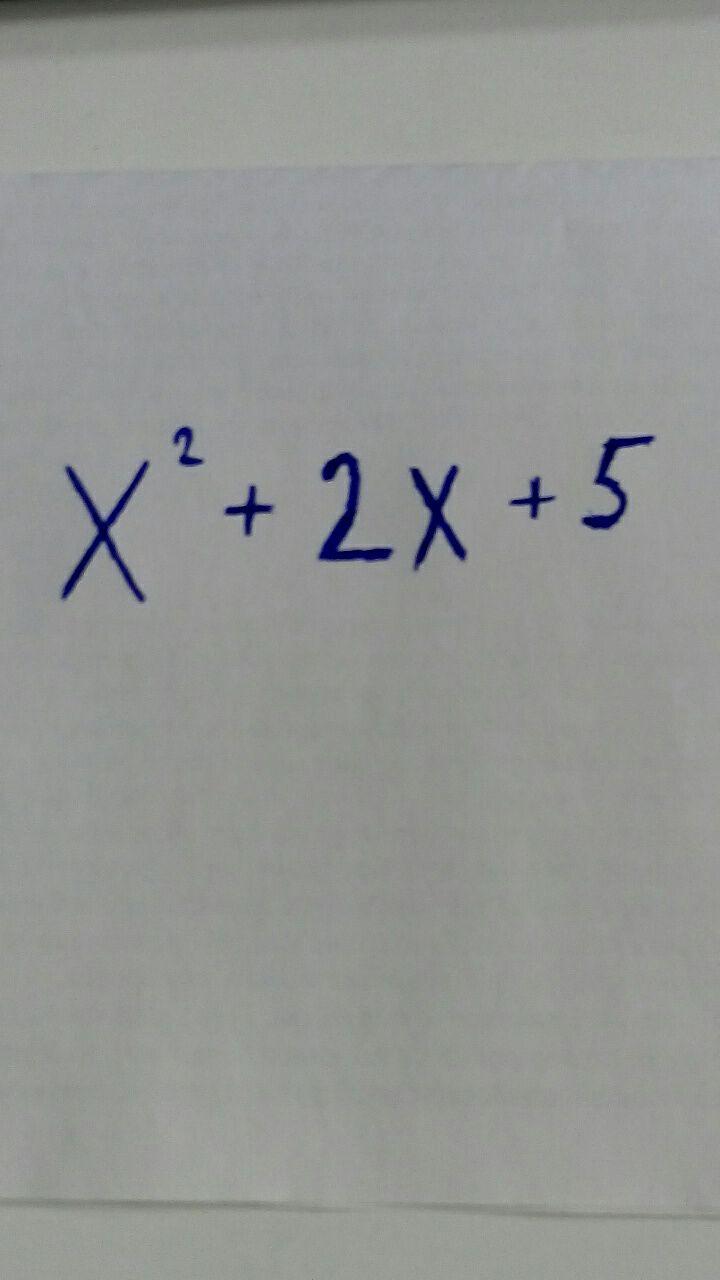 x² + 2x + 5